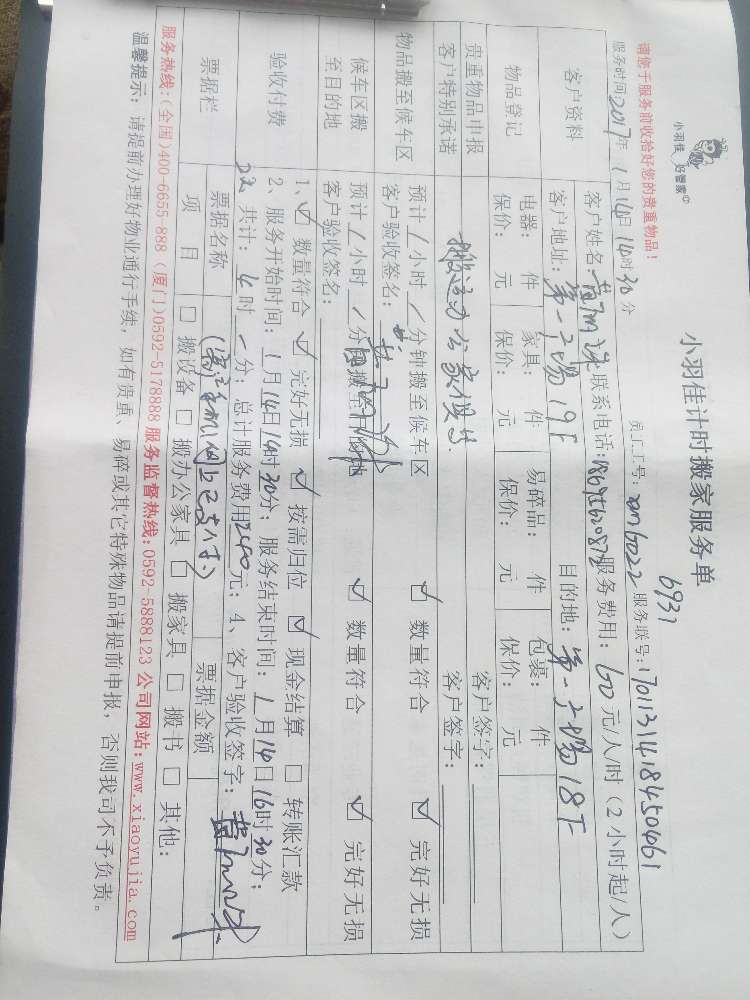 小羽佳 好管家©
小羽佳计时搬家服务单
6931
请您于服务前收拾好您的贵重物品!
员工工号: xm6022 服务联号: 1701131418450461
服务时间 2017年 1月 14日 14时 30分
服务费用: 60 元/人/时 (2 小时起/人)
客户资料
客户姓名: 联系电话:
客户地址: 第一广场19F 目的地: 第一广场18F
物品登记
电器: 件 家具: 件 易碎品: 件 包裹: 件
保价: 元 保价: 元 保价: 元 保价: 元
贵重物品申报 客户签字:
客户特别承诺 搬运办公家俱 客户签字:
物品搬至候车区
预计 / 小时 / 分钟搬至候车区 ☑ 数量符合 ☑ 完好无损
客户验收签名:
候车区搬至目的地
预计 / 小时 / 分钟搬至目的地 ☑ 数量符合 ☑ 完好无损
客户验收签名:
验收付费
1、☑ 数量符合 ☑ 完好无损 ☑ 按需归位 ☑ 现金结算 □ 转账汇款
2、服务开始时间: 1月14日14时30分; 服务结束时间: 1月14日16时30分;
共计: 4时 / 分; 总计服务费用240元; 4、客户验收签字:
票据栏
票据名称 票据金额
项 目 □ 搬设备 □ 搬办公家具 □ 搬家具 □ 搬书 □ 其他:
服务热线:(全国)400-6655-888 (厦门)0592-5178888 服务监督热线:0592-5888123 公司网站:www.xiaoyujia.com
温馨提示: 请提前办理好物业通行手续, 如有贵重、易碎或其它特殊物品请提前申报, 否则我司不予负责。